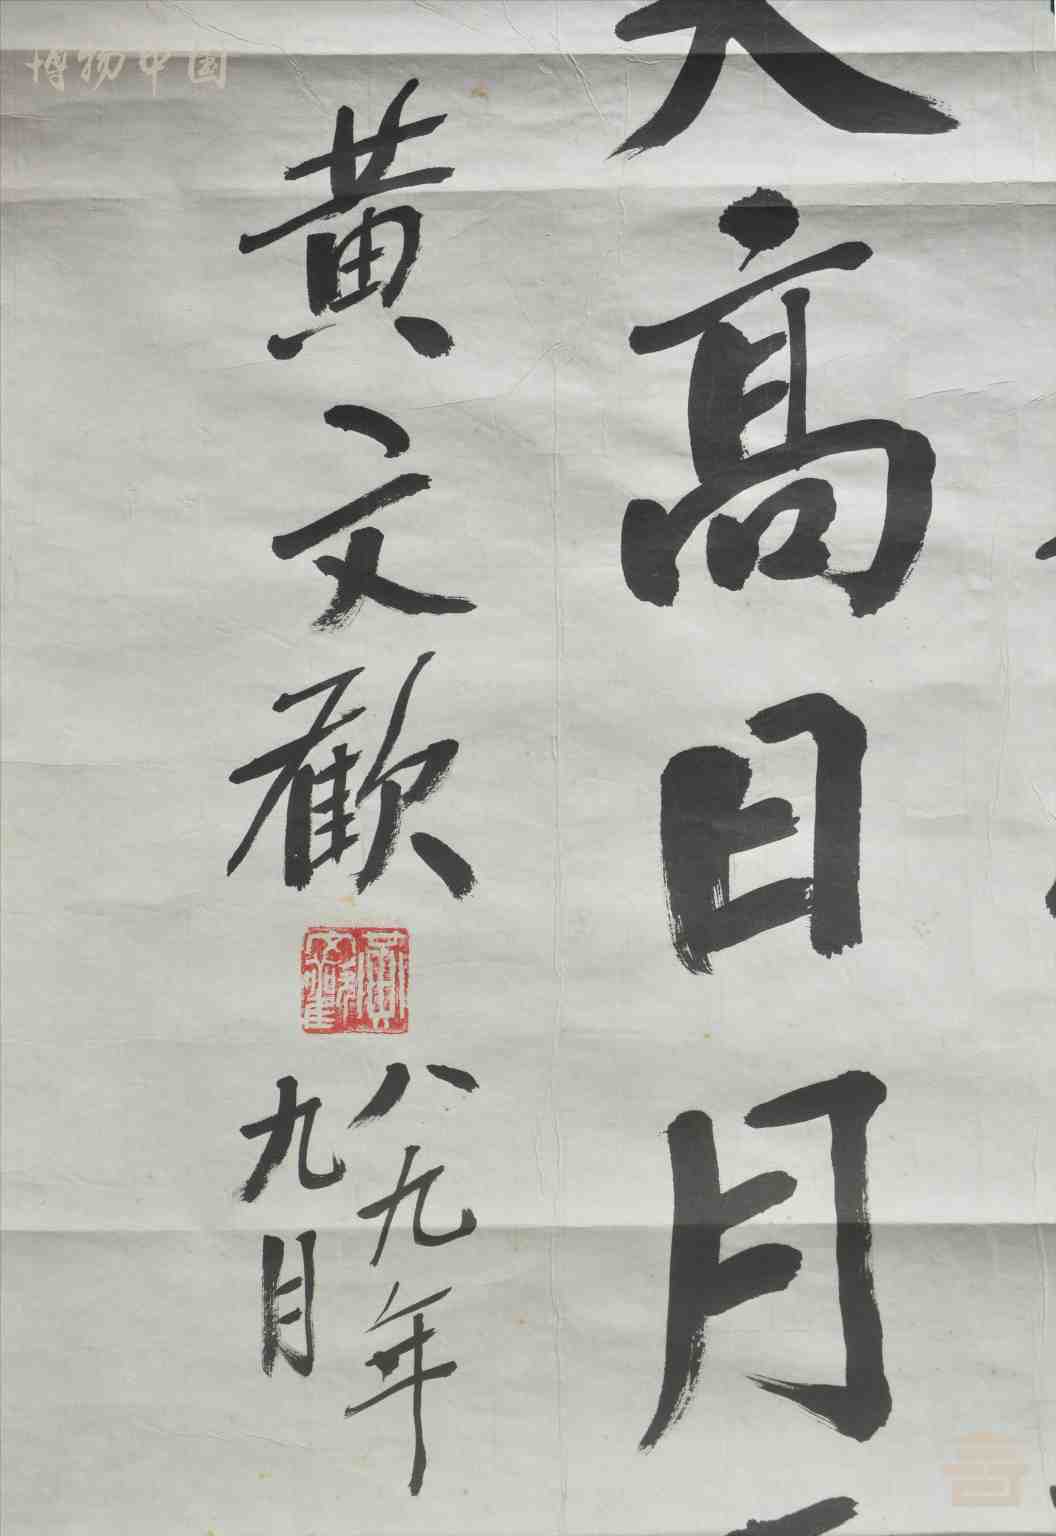 博物中国
高日月
黄文歡
八九年
九月